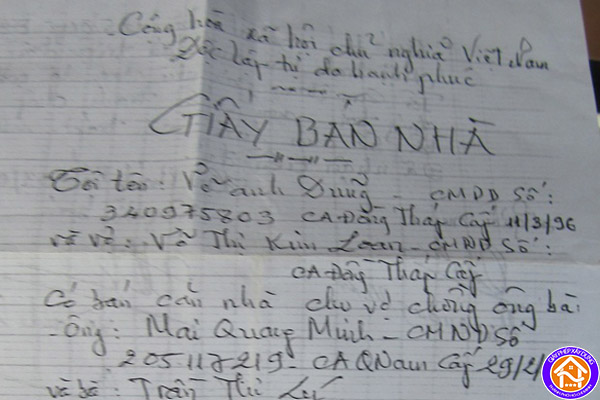 Cộng hòa xã hội chủ nghĩa Việt Nam
Độc lập tự do hạnh phúc
GIẤY BÁN NHÀ
Tôi tên: Võ anh Dũng - CMDD Số:
340975803 CA Đồng Tháp Cấp 11/3/96
và vợ: Võ Thị Kim Loan - CMND Số:
CA Đồng Tháp Cấp
Có bán căn nhà cho vợ chồng ông bà:
- Ông: Mai Quang Minh - CMND Số
205117219 - CA QNam Cấp 29/
và bà: Trần Thị